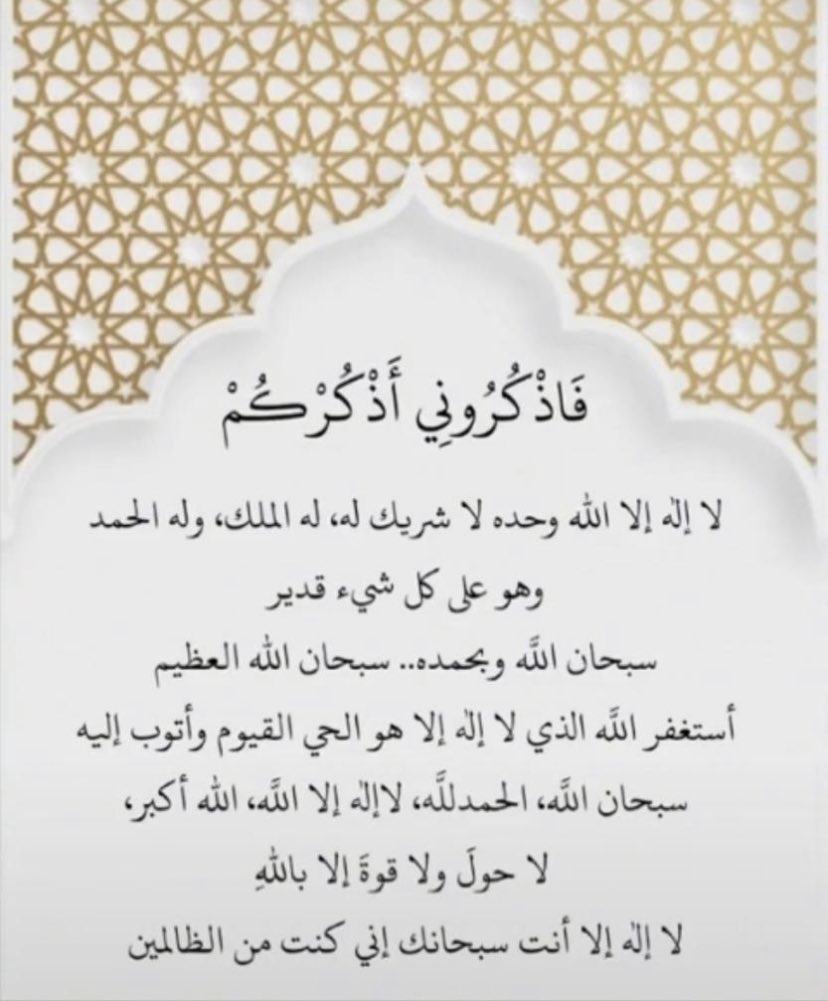 فَاذْكُرُونِي أَذْكُرْكُمْ
لا إلٰه إلا الله وحده لا شريك له، له الملك، وله الحمد
وهو على كل شيء قدير
سبحان اللَّه وبحمده.. سبحان الله العظيم
أستغفر اللَّه الذي لا إلٰه إلا هو الحي القيوم وأتوب إليه
سبحان اللَّه، الحمدللَّه، لاإلٰه إلا اللَّه، الله أكبر،
لا حولَ ولا قوةَ إلا باللهِ
لا إلٰه إلا أنت سبحانك إني كنت من الظالمين